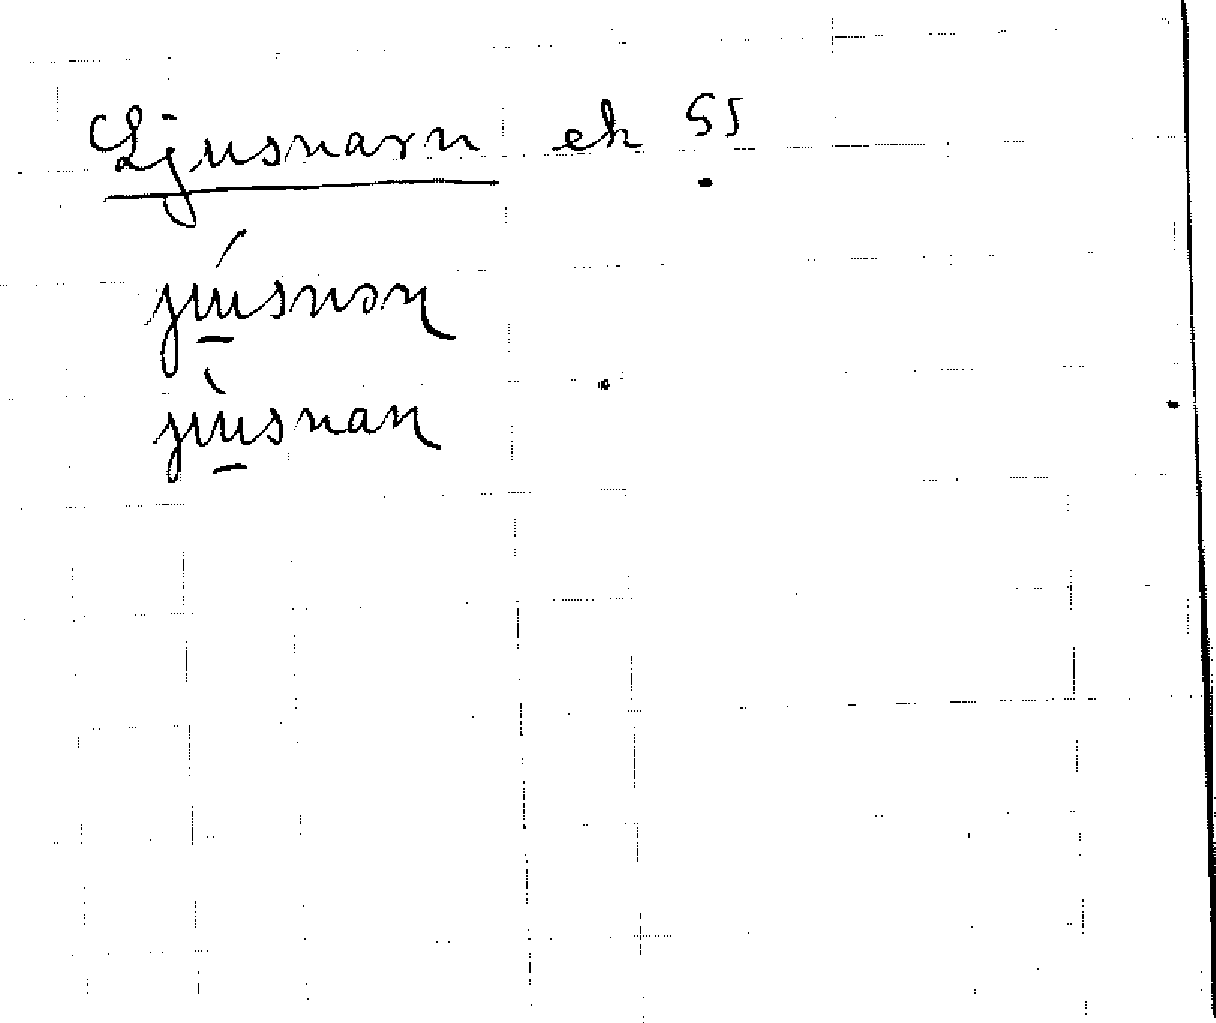 Ljusnarn ek 55
júsnaɳ
jùsnaɳ